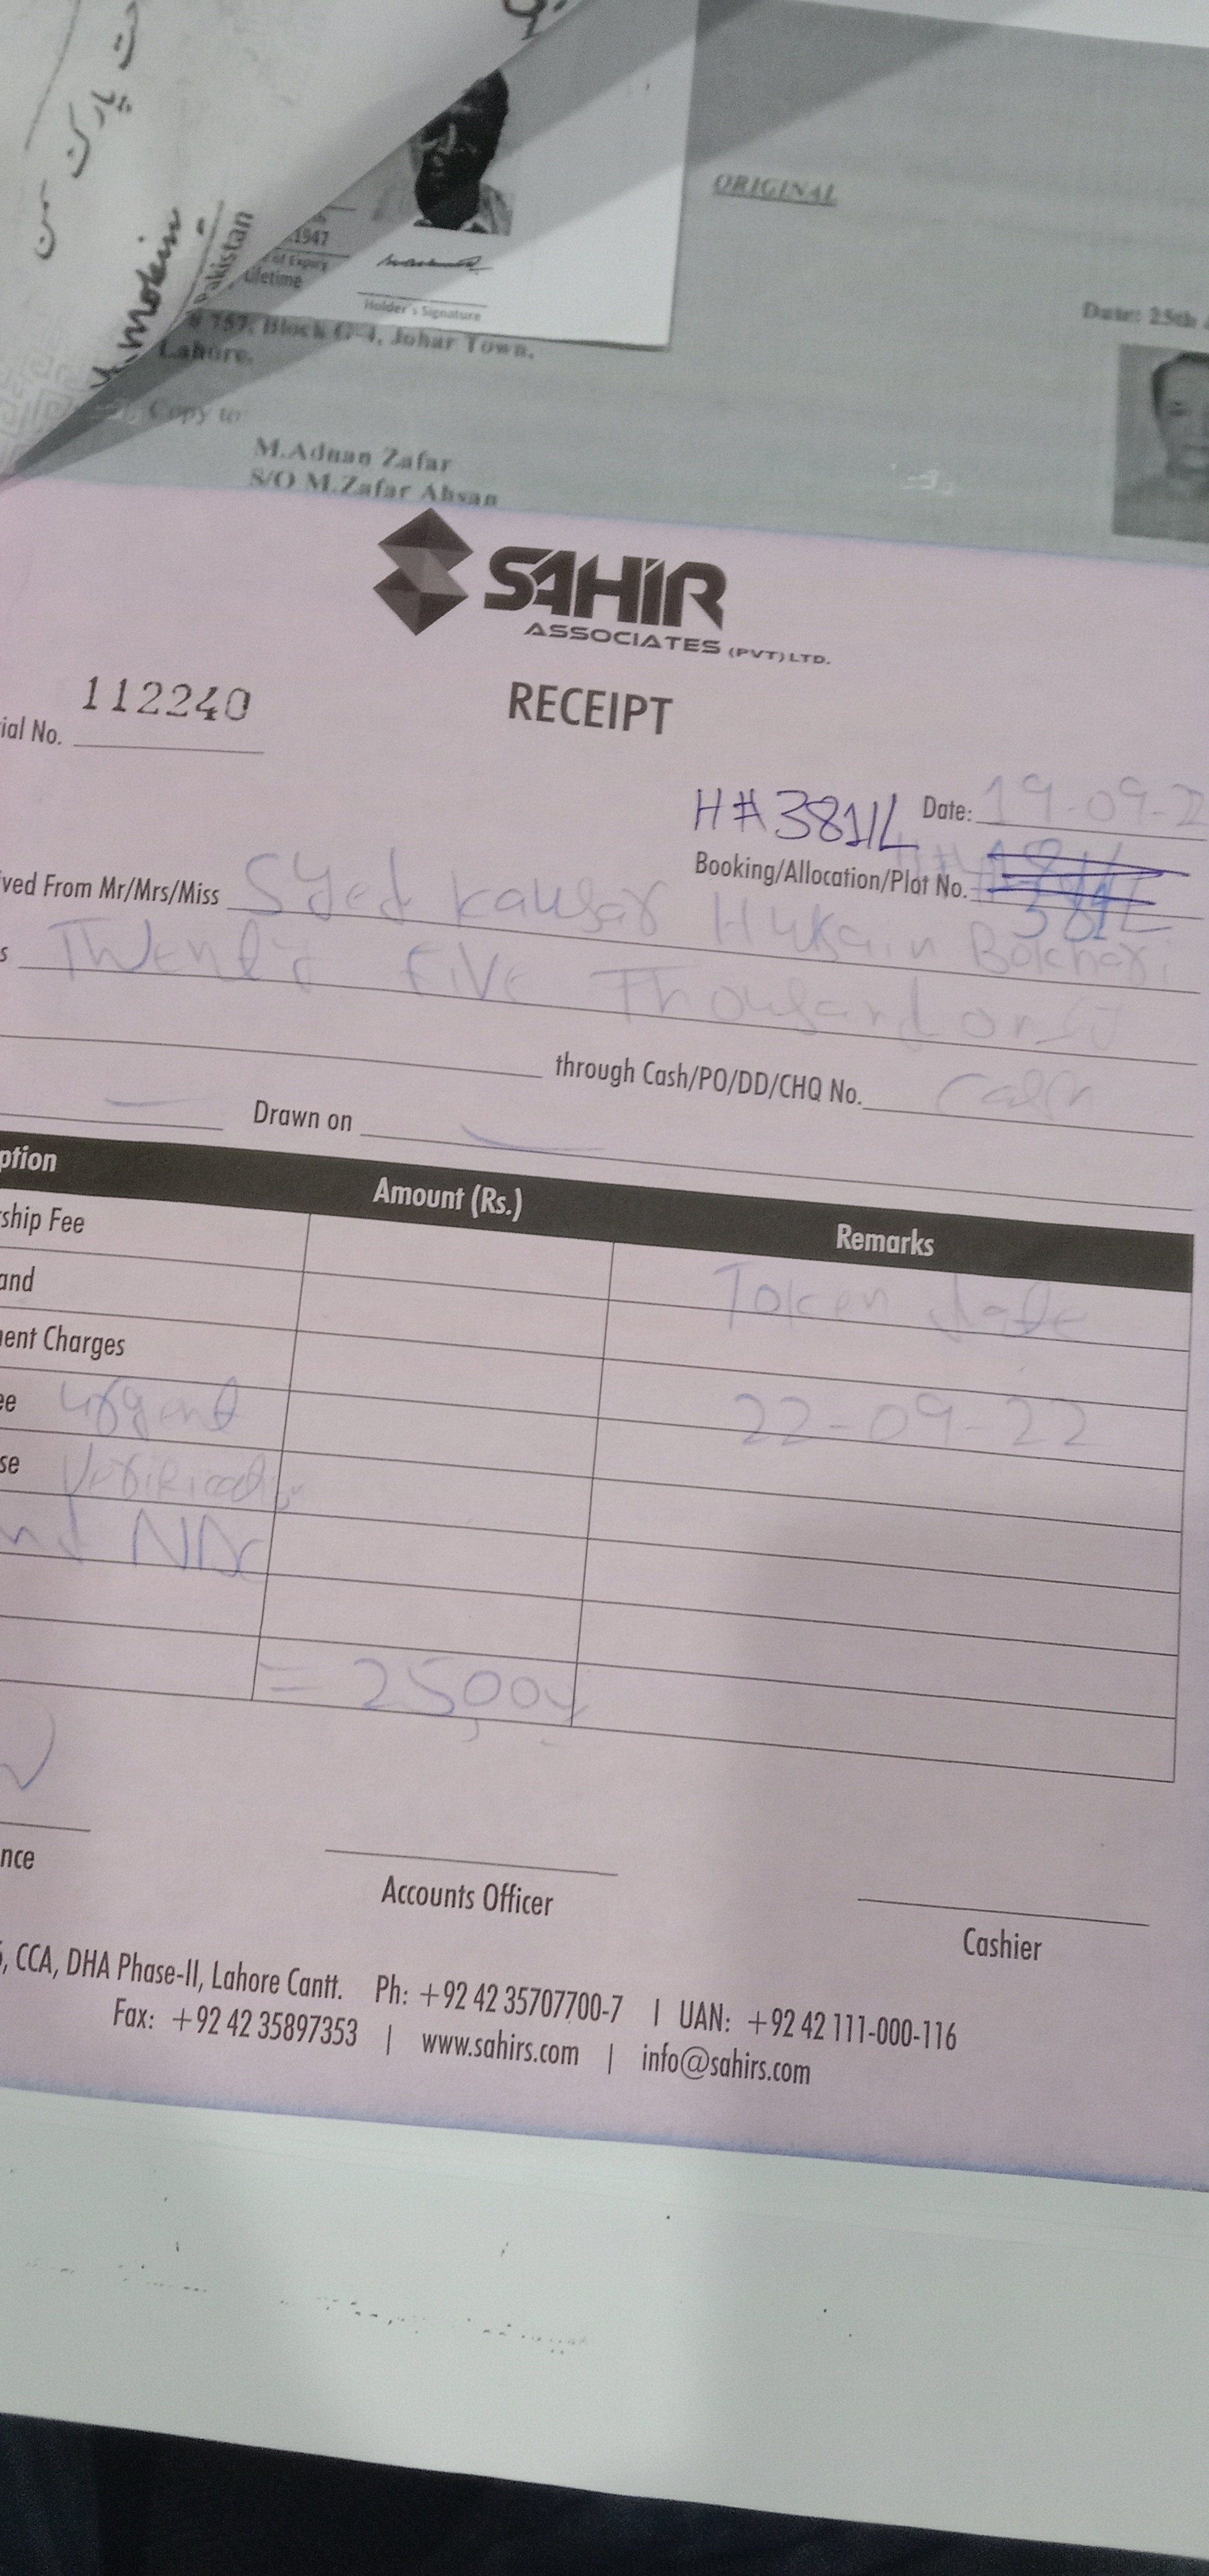 پارک
Mokim
Pakistan
.1947
of Expiry
Lifetime
Holder's Signature
ORIGINAL
Date: 25th
# 757, Block G-4, Johar Town,
Lahore.
Copy to
M.Adnan Zafar
S/O M.Zafar Ahsan
SAHIR
ASSOCIATES (PVT) LTD.
112240
RECEIPT
ial No.
H#381/L Date: 19-09-2
Booking/Allocation/Plot No. 381L
ved From Mr/Mrs/Miss Syed Kausar Hussain Bokhari
s Twenty Five Thousand only
through Cash/PO/DD/CHQ No. Cash
Drawn on
ption Amount (Rs.) Remarks
ship Fee
Token date
and
ent Charges
ee urgent
22-09-22
se Verification
and NDC
= 25,00
nce
Accounts Officer
Cashier
, CCA, DHA Phase-II, Lahore Cantt. Ph: +92 42 35707700-7 | UAN: +92 42 111-000-116
Fax: +92 42 35897353 | www.sahirs.com | info@sahirs.com